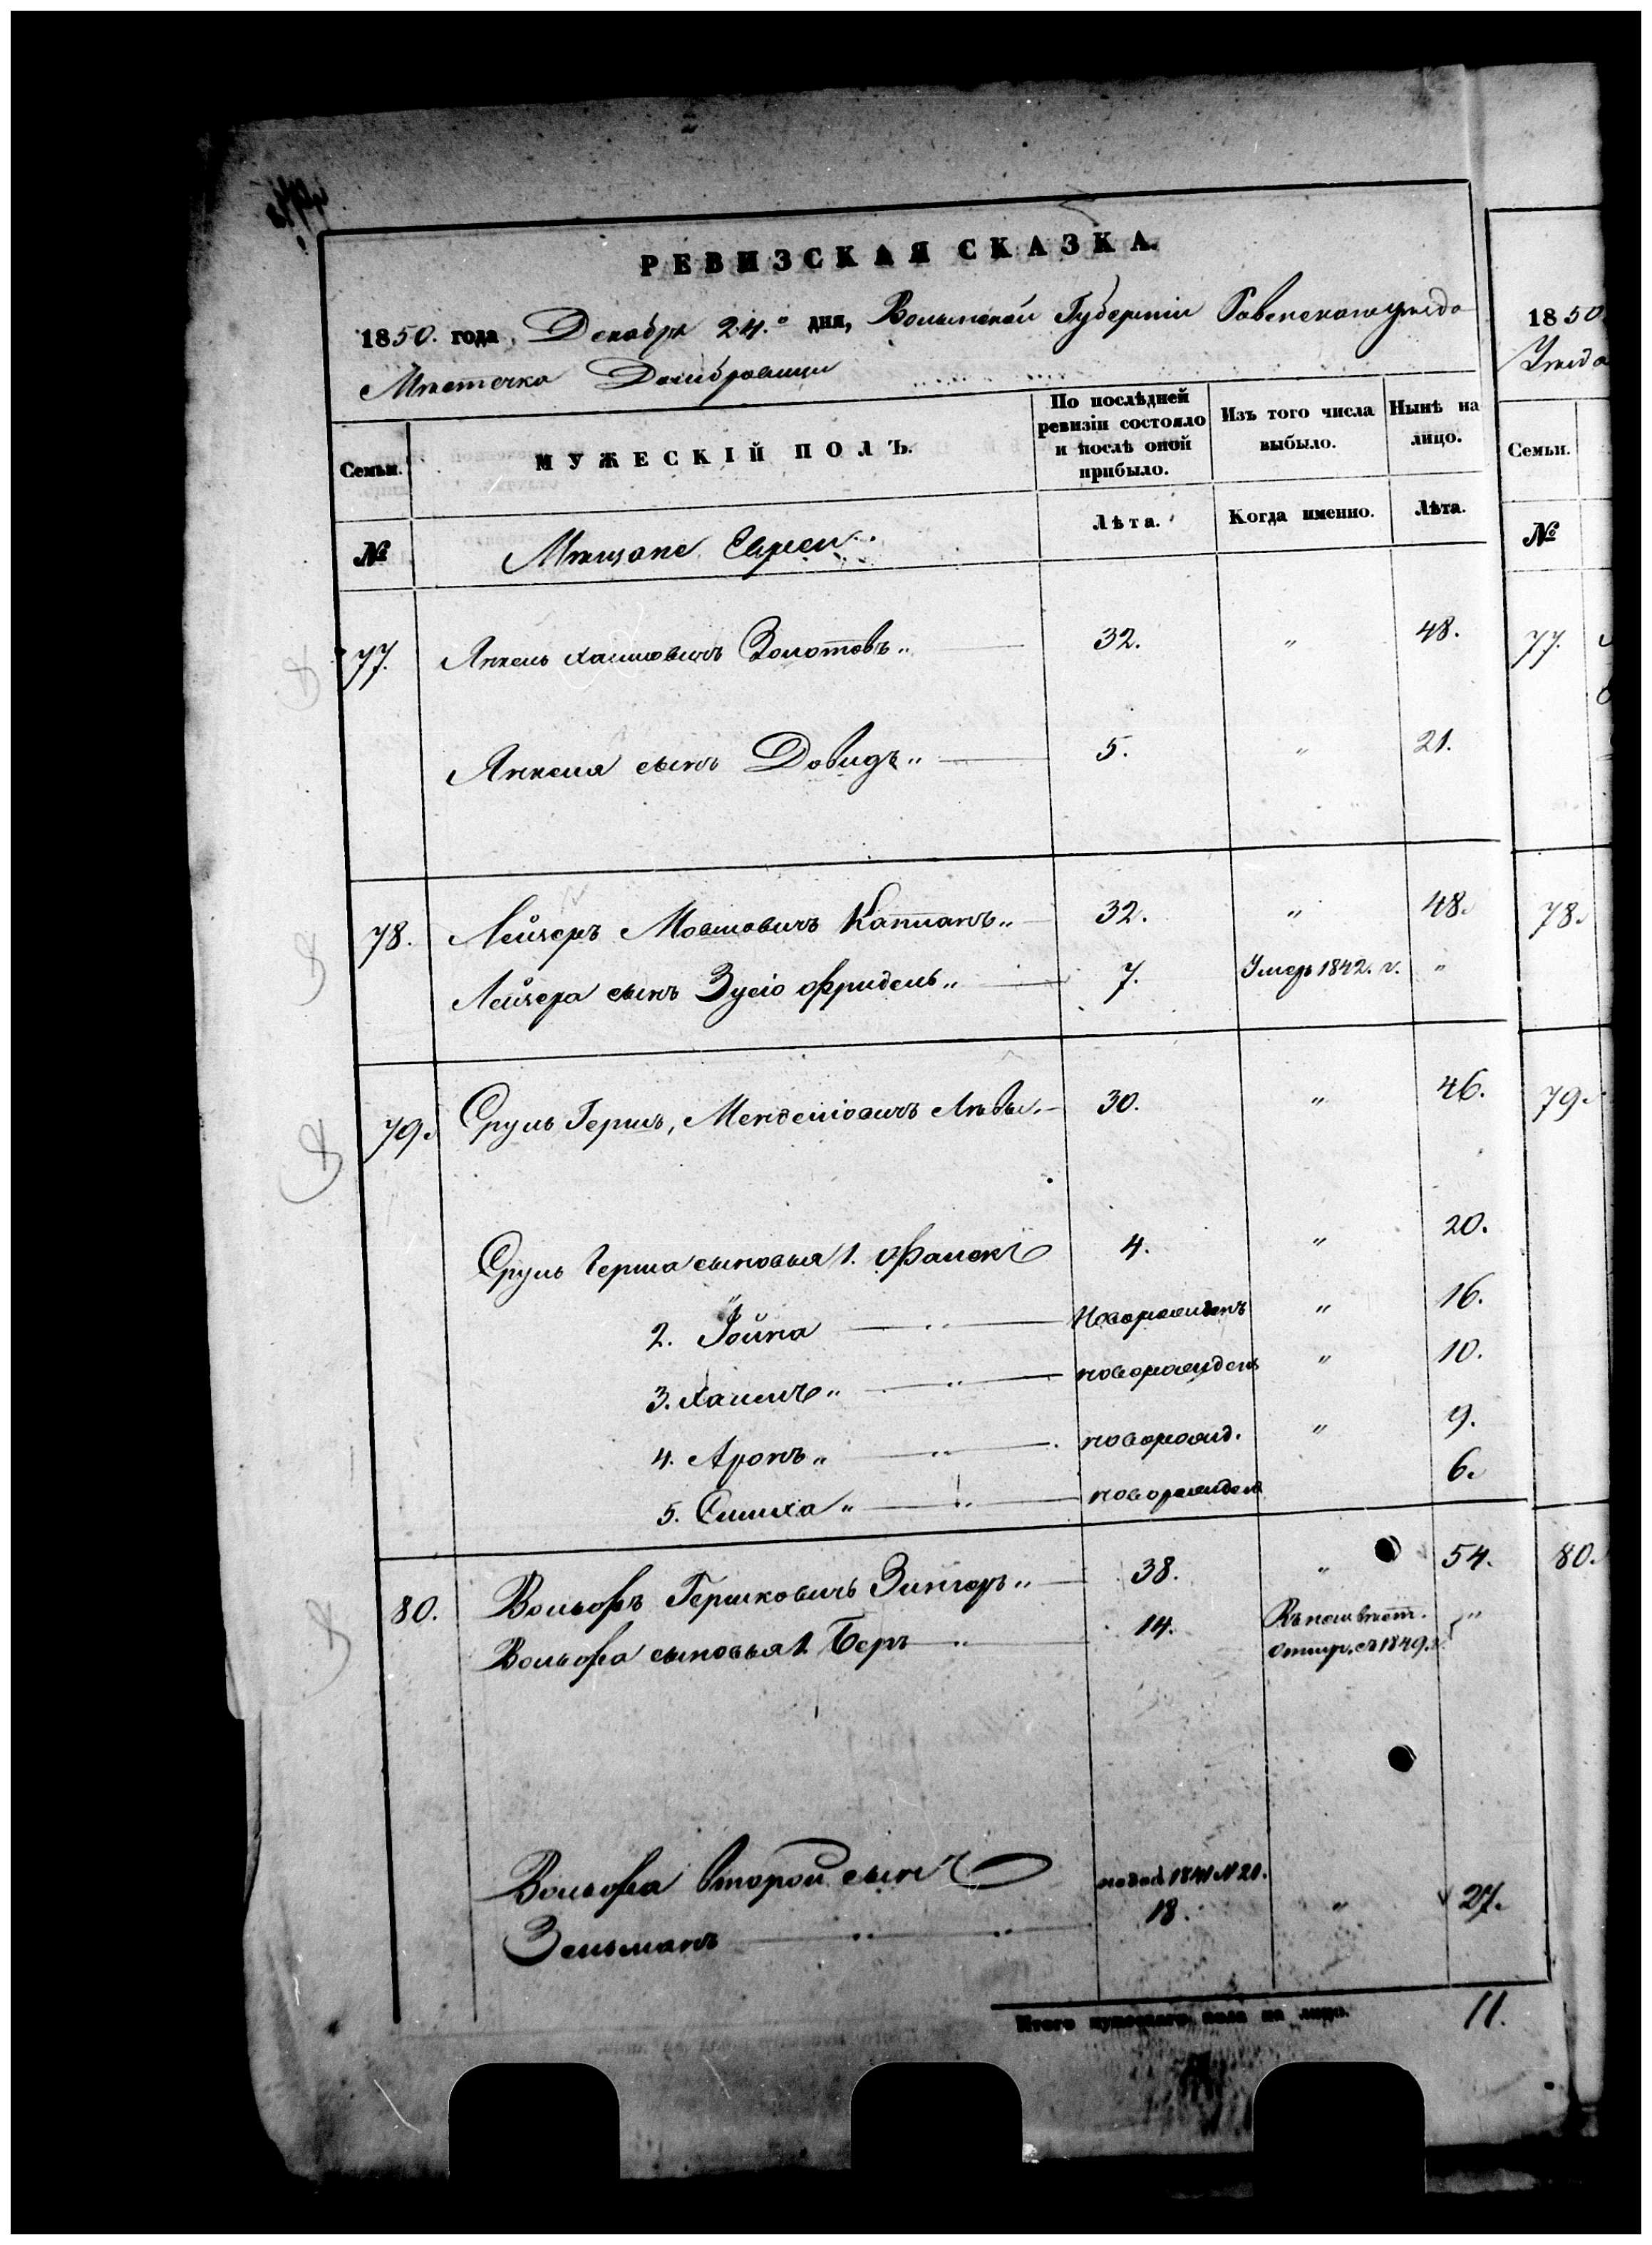 РЕВИЗСКАЯ СКАЗКА.
1850. года, Декабря 24.º дня, Волынской Губернии Ровенского уезда
Местечко Домбровицы
Семьи. МУЖЕСКІЙ ПОЛЪ. По послѣдней ревизіи состояло и послѣ оной прибыло. Изъ того числа выбыло. Нынѣ на лицо.
№ Мѣщане Евреи Лѣта. Когда именно. Лѣта.
77. Янкель Хаимовичъ Золотовъ „ 32. „ 48.
Янкеля сынъ Довидъ „ 5. „ 21.
78. Лейзеръ Мовшовичъ Капланъ „ 32. „ 48.
Лейзера сынъ Зусіо Фридель „ 7. Умеръ 1842. г. „
79. Сруль Гершъ, Менделіовичъ 30. „ 46.
Сруль Герша сыновья 1. Фалекъ 4. „ 20.
2. Іойна „ Новорожденъ „ 16.
3. Хаимъ „ „ новорожден „ 10.
4. Аронъ „ „ новорожд. „ 9.
5. Симха „ „ новорожден 6.
80. Вольфъ Гершковичъ Зингеръ „ 38. „ 54.
Вольфа сыновья 1. Беръ „ 14. Въ неизвѣст. отлуч. съ 1849. г. „
Вольфа второй сынъ 1841 № 20.
Зельманъ „ „ 18. „ 27.
Итого мужескаго пола на лицо. 11.
1850
Уезда
Семьи.
№
77.
78.
79.
80.